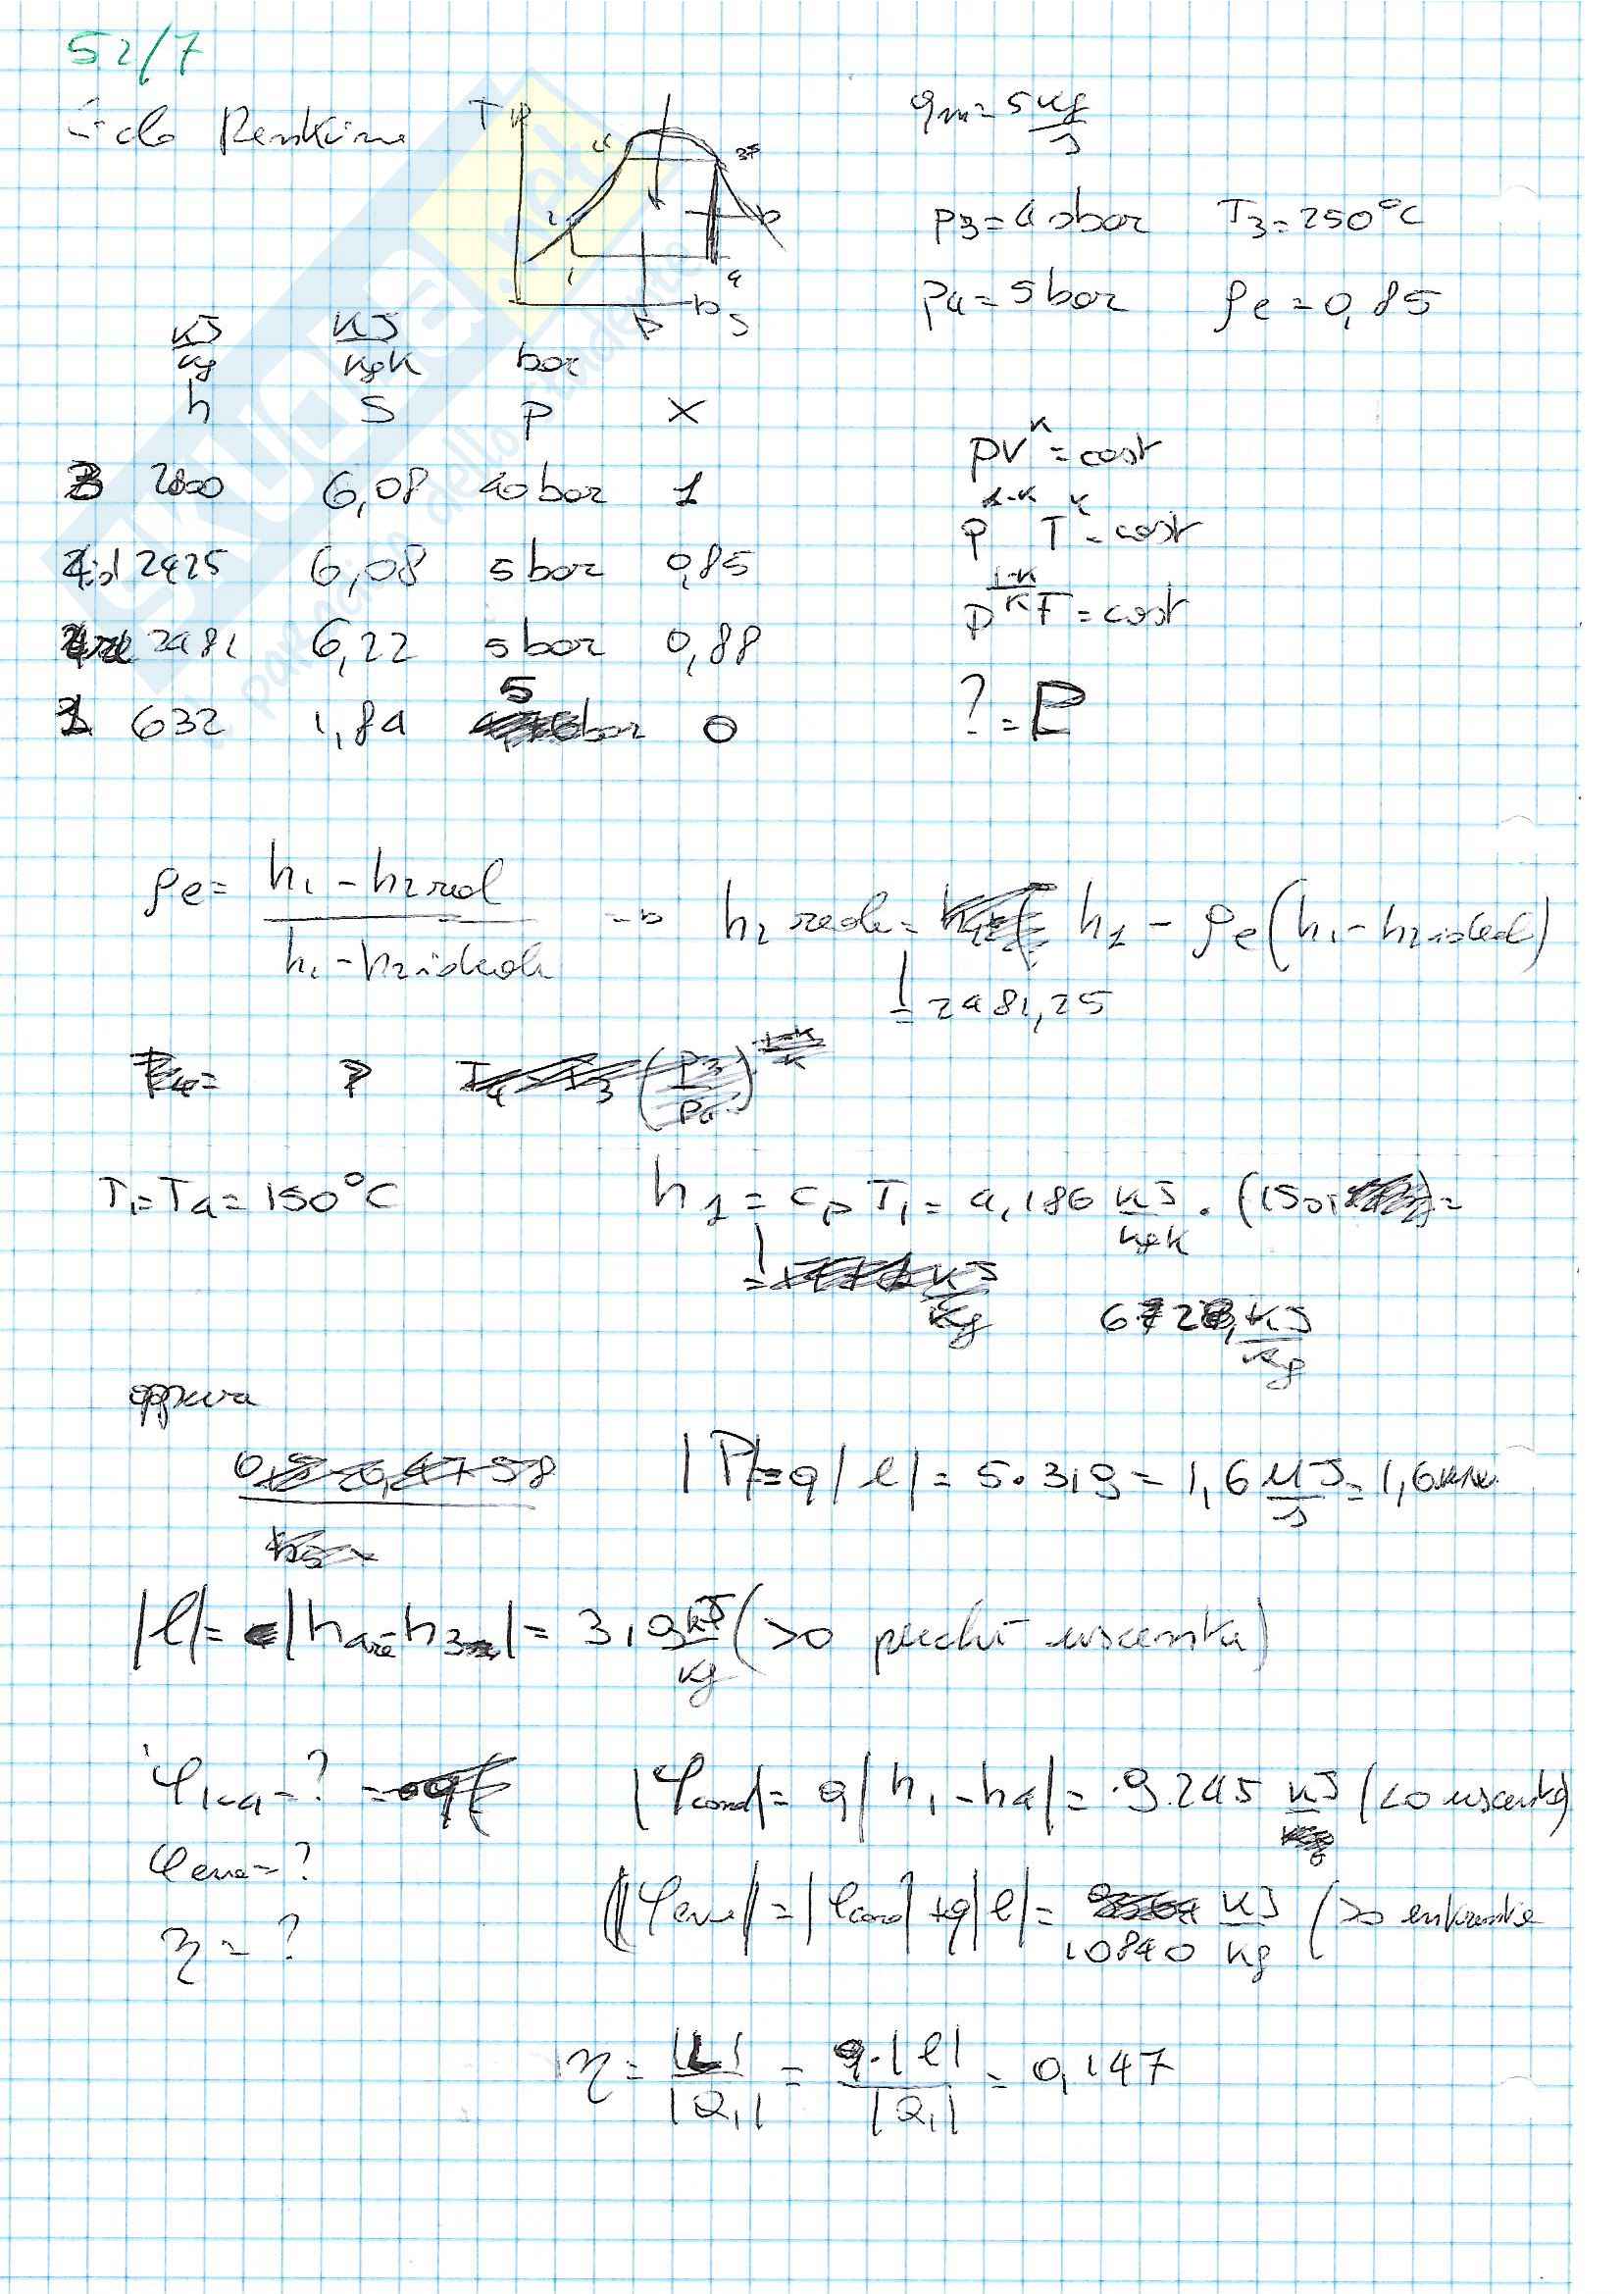 52/7
Ciclo Rankine
T
4
3
2
1
4
S
qm = 5 kg/s
p3 = 40 bar T3 = 250°C
p4 = 5 bar ρe = 0,85
kJ/kg kJ/kgK bar
h S P X
3 2800 6,08 40 bar 1
4id 2425 6,08 5 bar 0,85
2481 6,22 5 bar 0,88
1 632 1,84 5 bar 0
pv^k = cost
p^1-k T^k = cost
p^1-k/k T = cost
? = P
ρe = h1 - h2 real / h1 - h2 ideale -> h2 reale = h1 - ρe (h1 - h2 ideal)
= 2481,25
T1 = T4 = 150°C h1 = cp T1 = 4,186 kJ/kgK · (150
kJ/kg
oppure
|P| = q|l| = 5·319 = 1,6 MJ/s = 1,6 MW
|l| = |h4re - h3| = 319 kJ/kg (>0 perché uscente)
φ1-4 = ? |φcond| = q|h1 - h4| = 9.245 kJ (<0 uscente)
φeva = ?
|φeva| = |φcond| + q|l| = 10840 kJ/kg (>0 entrante
η = ?
η = |L|/|Q1| = q·|l|/|Q1| = 0,147
SKUOLA.net